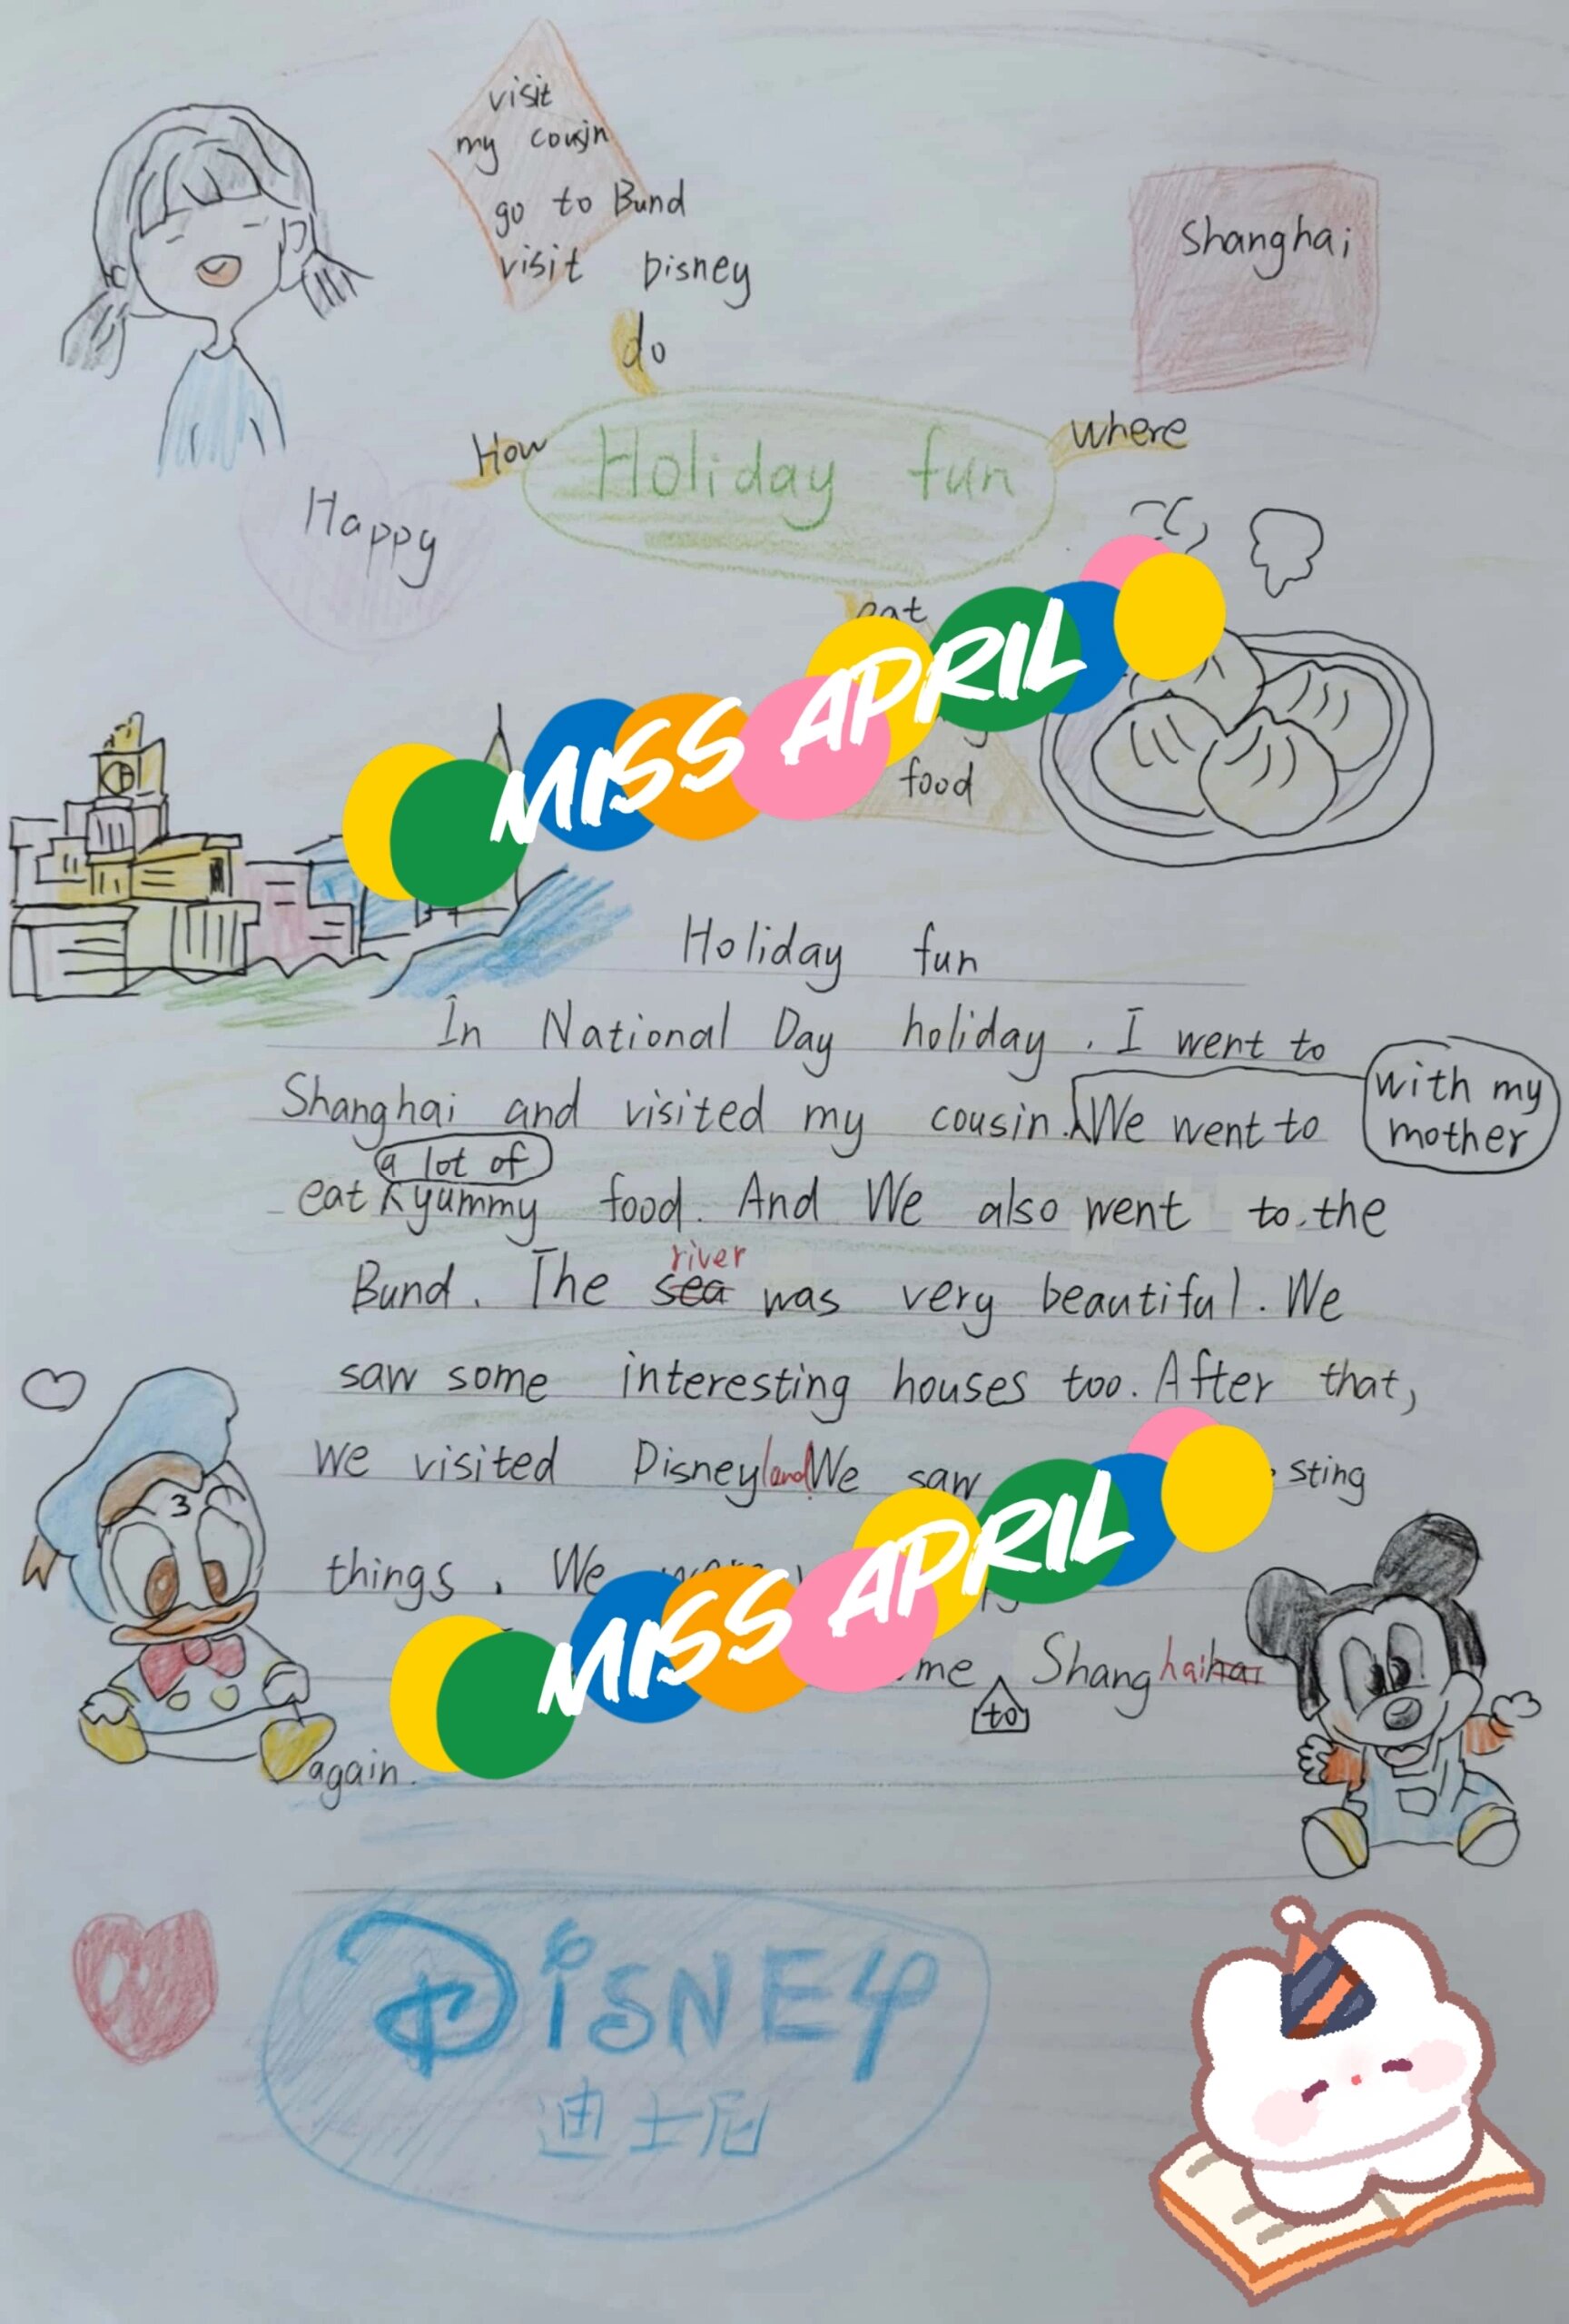 visit
my cousin
go to Bund
visit Disney
do
Shanghai
How
Holiday fun
where
Happy
eat
MISS APRIL
food
Holiday fun
In National Day holiday . I went to
Shanghai and visited my cousin. We went to
with my
mother
a lot of
eat yummy food. And We also went to the
river
Bund. The sea was very beautiful. We
saw some interesting houses too. After that,
we visited Disneyland We saw sting
things. We
MISS APRIL
me Shanghai
to
again.
DiSNEY
迪士尼